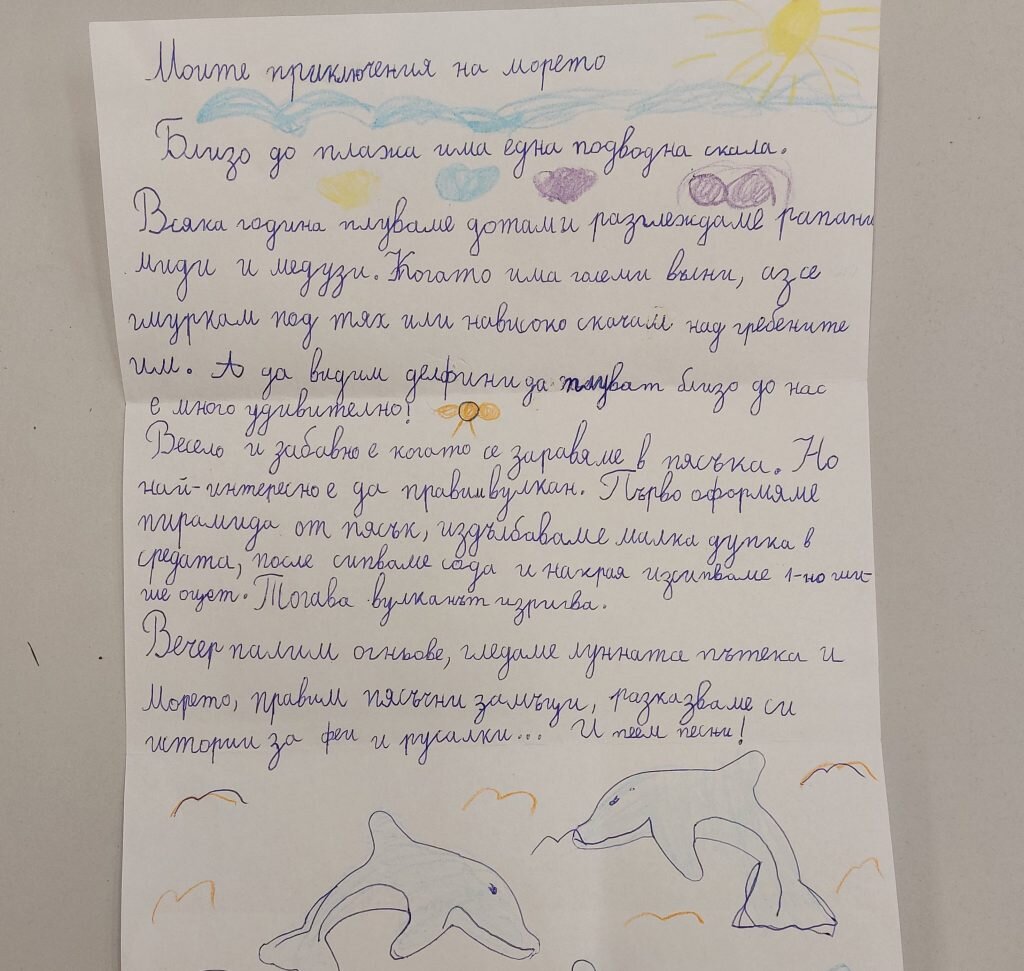 Моите приключения на морето
Близо до плажа има една подводна скала.
Всяка година плуваме дотам и разглеждаме рапани
миди и медузи. Когато има големи вълни, аз се
гмуркам под тях или нависоко скачам над гребените
им. А да видим делфини да плуват близо до нас
е много удивително!
Весело и забавно е когато се заравяме в пясъка. Но
най-интересно е да правим вулкан. Първо оформяме
пирамида от пясък, издълбаваме малка дупка в
средата, после сипваме сода и накрая изсипваме 1-но ши-
ше оцет. Тогава вулканът изригва.
Вечер палим огньове, гледаме лунната пътека и
Морето, правим пясъчни замъци, разказваме си
истории за феи и русалки... И пеем песни!